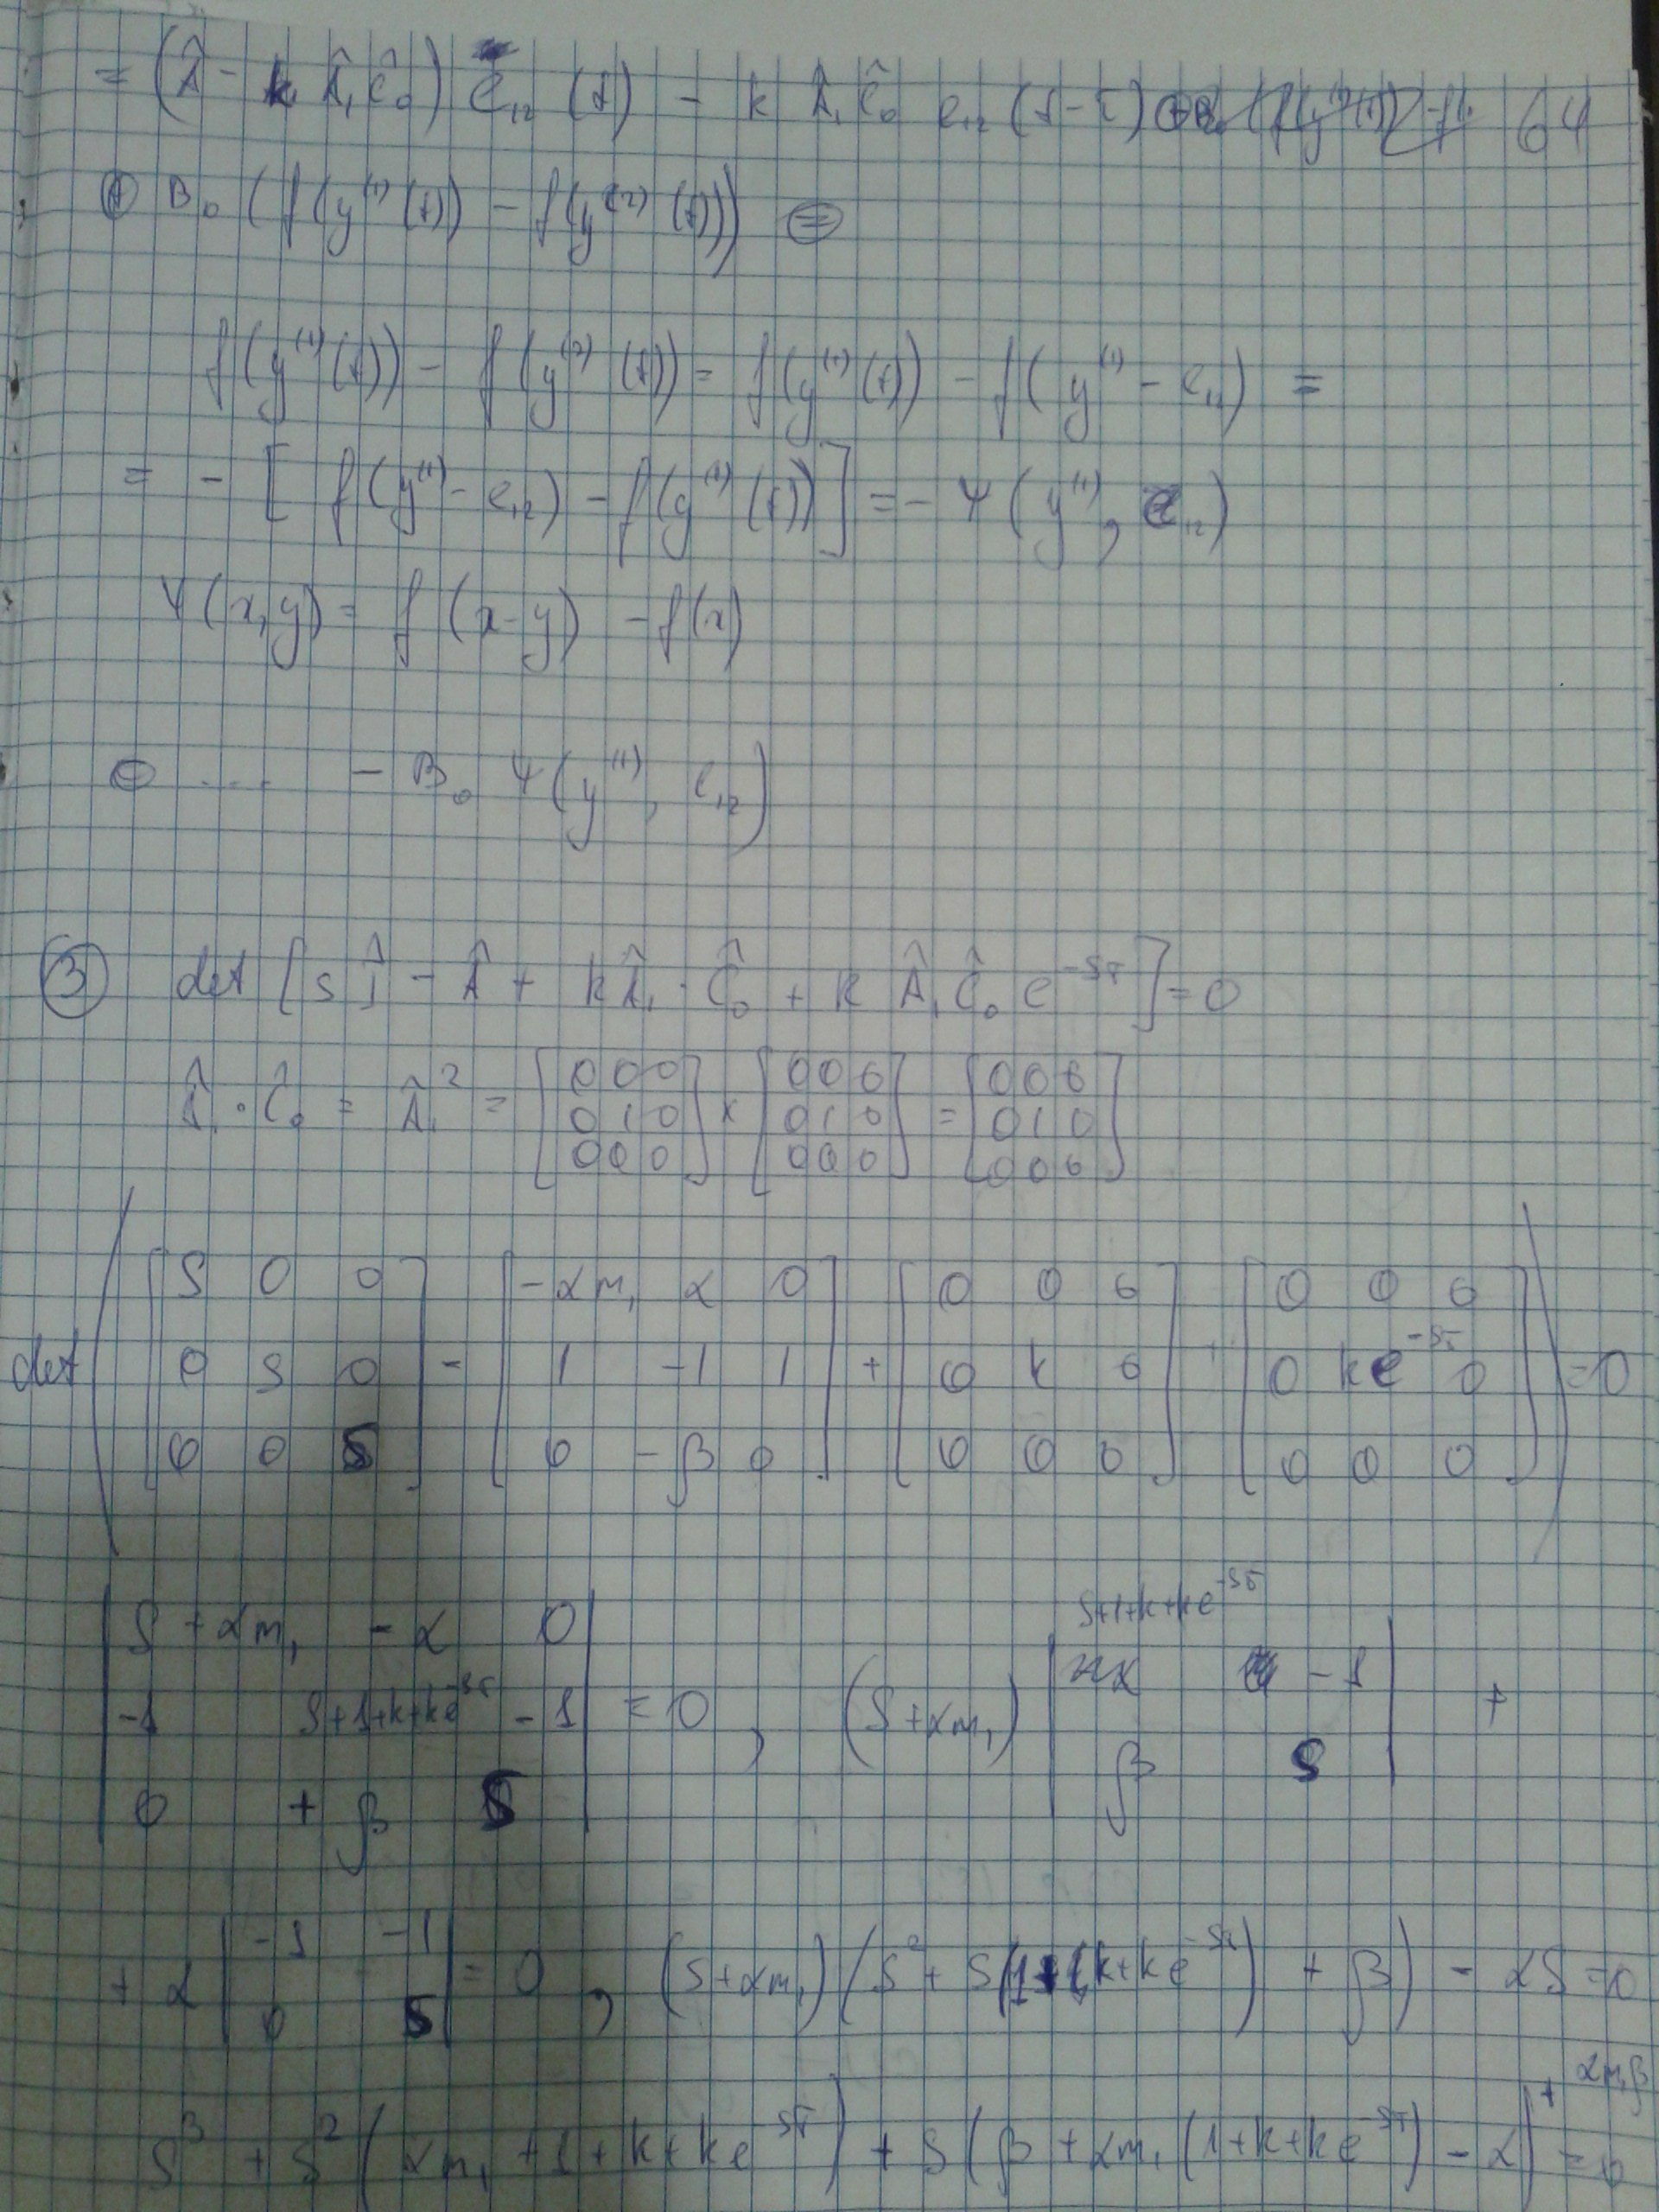 = (Â - k Â₁Ĉ₀) e₁₂ (t) - k Â₁Ĉ₀ e₁₂ (t-τ) 64
⊕ B₀ (f(y⁽¹⁾(t)) - f(y⁽²⁾(t))) ⊜
f(y⁽¹⁾(t)) - f(y⁽²⁾(t)) = f(y⁽¹⁾(t)) - f(y⁽¹⁾ - e₁₂) =
= - [f(y⁽¹⁾ - e₁₂) - f(y⁽¹⁾(t))] = - Ψ(y⁽¹⁾, e₁₂)
Ψ(x,y) = f(x-y) - f(x)
⊜ .... - B₀ Ψ(y⁽¹⁾, e₁₂)
③ det [s Î - Â + kÂ₁·Ĉ₀ + k Â₁Ĉ₀ e^{-sτ}] = 0
Â₁·Ĉ₀ = Â₁² = [0 0 0; 0 1 0; 0 0 0] × [0 0 0; 0 1 0; 0 0 0] = [0 0 0; 0 1 0; 0 0 0]
det ([S 0 0; 0 S 0; 0 0 S] - [-αm₁ α 0; 1 -1 1; 0 -β 0] + [0 0 0; 0 k 0; 0 0 0] + [0 0 0; 0 ke^{-sτ} 0; 0 0 0]) = 0
|S+αm₁ -α 0; -1 S+1+k+ke^{-sτ} -1; 0 +β S| = 0, (S+αm₁) |S+1+k+ke^{-sτ} -1; β S| +
+ α |-1 -1; 0 S| = 0, (S+αm₁)(S² + S(1+k+ke^{-sτ}) + β) - αS = 0
S³ + S²(αm₁+1+k+ke^{-sτ}) + S(β+αm₁(1+k+ke^{-sτ}) - α) + αm₁β = 0